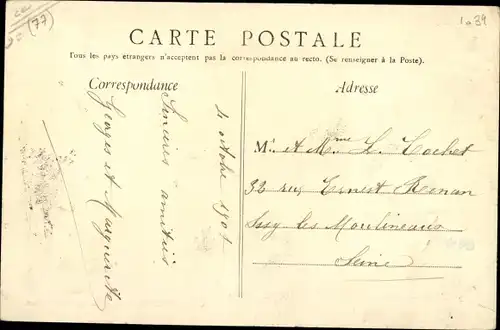 (77)
1a39
CARTE POSTALE
Tous les pays étrangers n'acceptent pas la correspondance au recto. (Se renseigner à la Poste).
Correspondance
Adresse
4 octobre 1901
Sincères amitiés
Georges et Marguerite
M. et Mme L. Cochet
32 rue Ernest Renan
Issy les Moulineaux
Seine